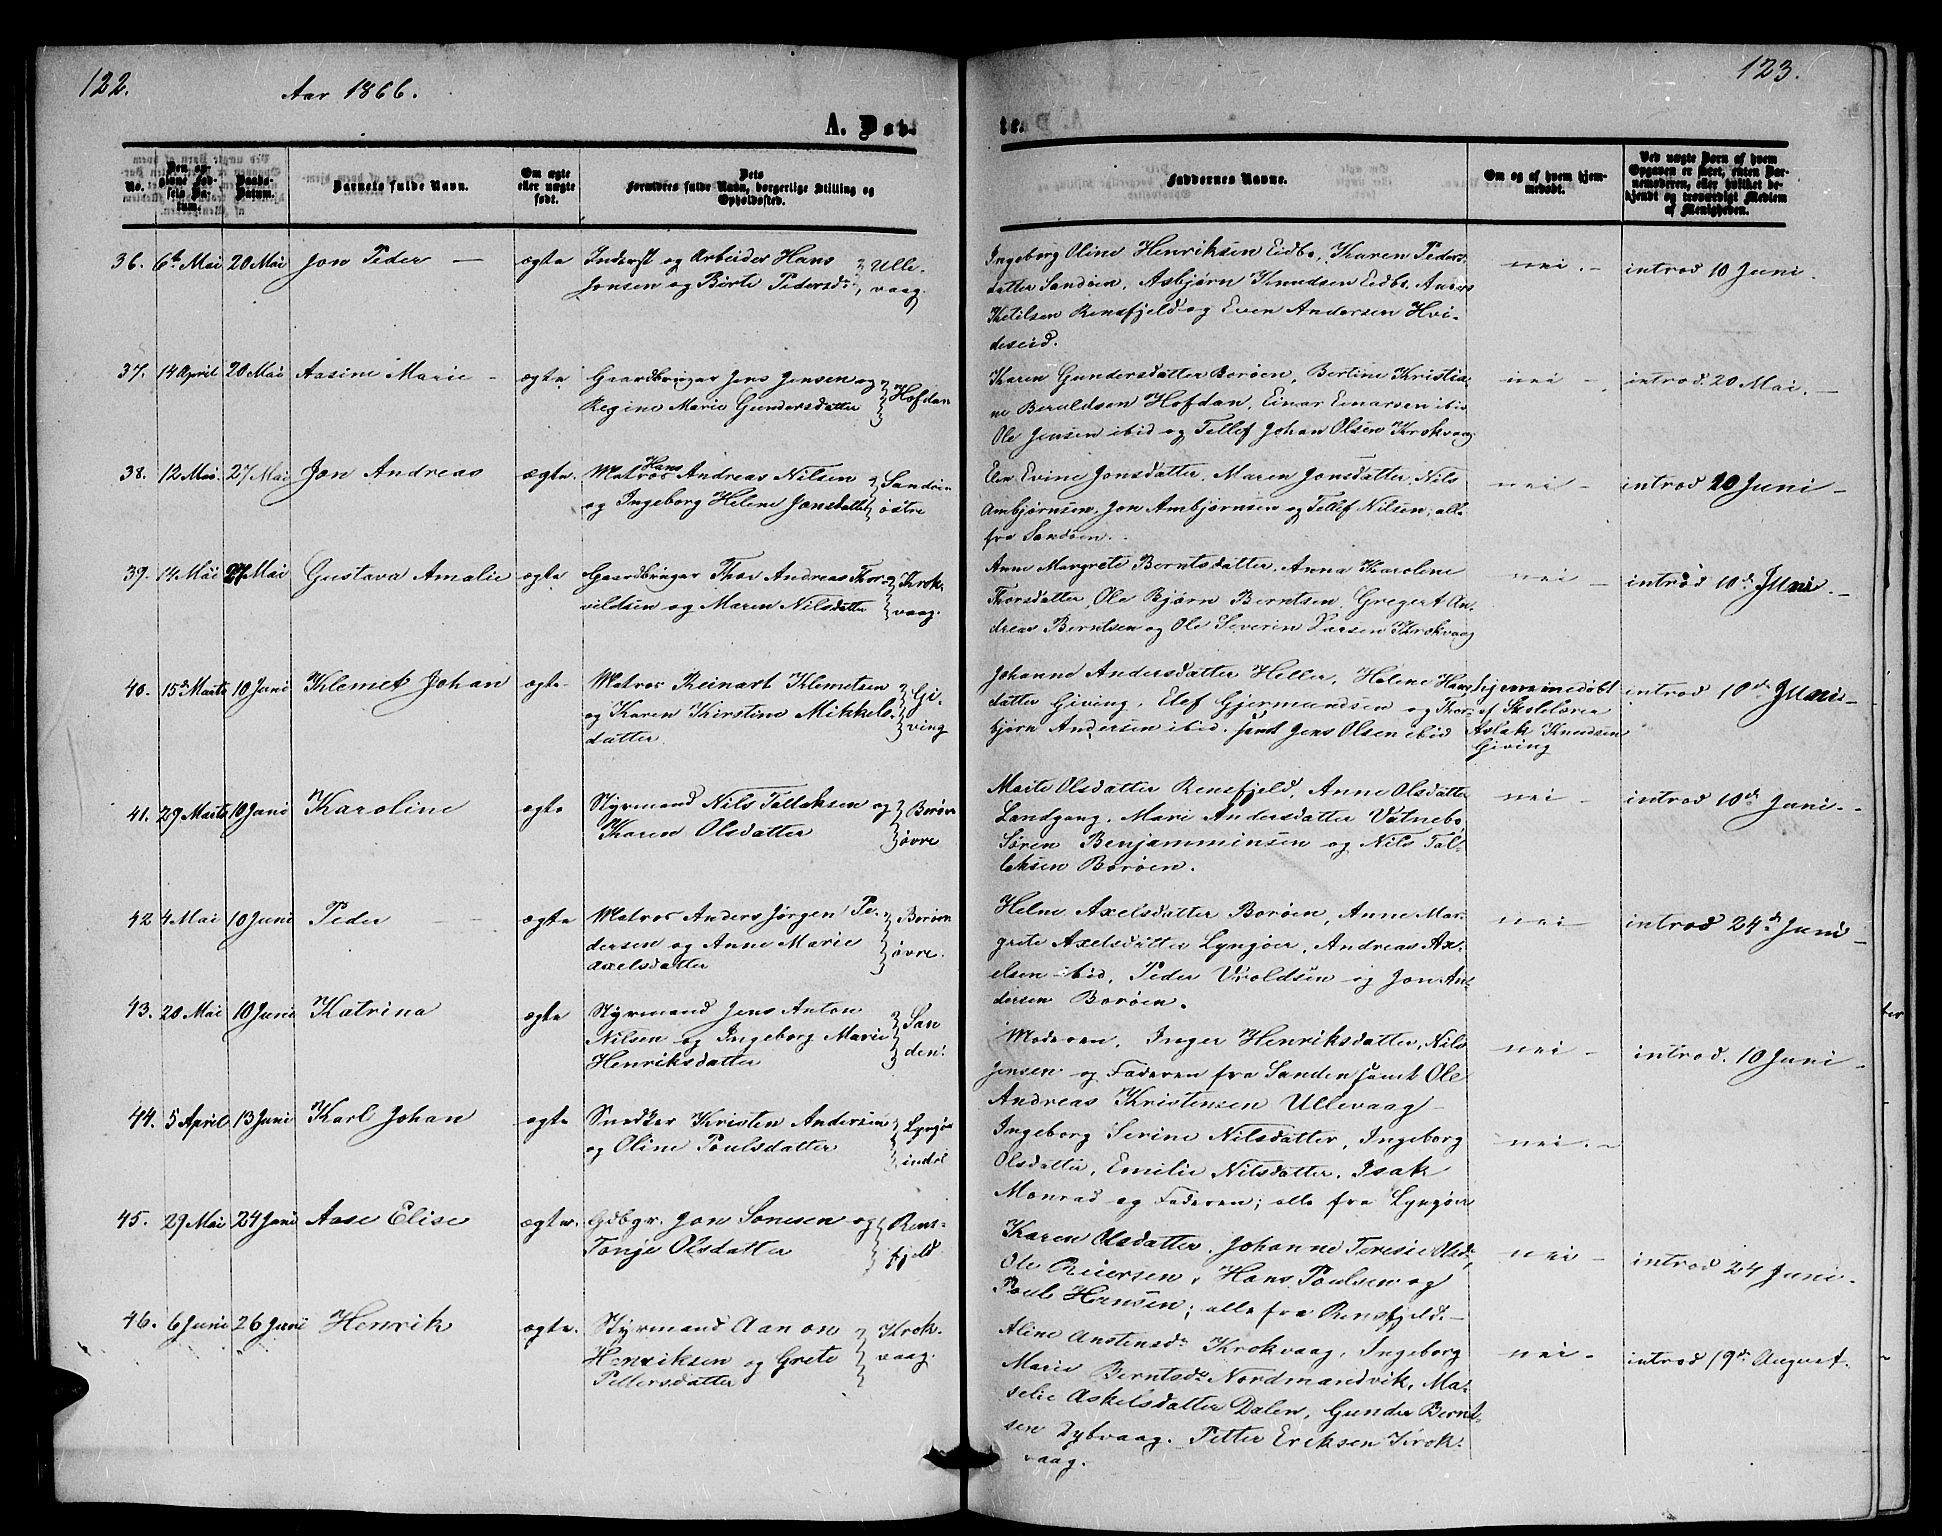 122.
Aar 1866.
A. Døb-
te.
123.
No.
Den op-
givne Fød-
sels Da-
tum.
Daabs-
Datum.
Barnets fulde Navn.
Om ægte
eller uægte
født.
Dets
Forældres fulde Navn, borgerlige Stilling og
Opholdssted.
Faddernes Navne.
Om og af hvem hjem-
medøbt.
Ved uægte Børn af hvem
Opgaven er skeet, enten Bar-
nemoderen, eller hvilket be-
kjendt og troværdigt Medlem
af Menigheden.
36. 6te Mai 20 Mai Jon Peder — ægte Inderst og Arbeider Hans
Jonsen og Børte Pedersd:
Ulle-
vaag.
Ingeborg Oline Henriksen Eidbo, Karen Peders-
datter Sandøen, Asbjørn Knudsen Eidbo, Anders
Ketilsen Rensfjeld og Even Andersen Hvi-
deseid.
nei. — introd 10 Juni.
37. 14 April 20 Mai Aasine Marie — ægte Gaardbruger Jens Jensen og
Regine Marie Gundersdatter
Hofdan
Karen Gundersdatter Borøen, Bertine Kristia-
ne Beruldsen Hofdan, Einar Einarsen ibid
Ole Jensen ibid og Tellef Johan Olsen Krokvaag
nei — introd. 20 Mai. —
38. 12 Mai. 27 Mai Jon Andreas ægte. Matros Hans Andreas Nilsen
og Ingeborg Helene Jonsdatter
Sandøen
østre
Elen Evine Jonsdatter, Maren Jonsdatter, Nils
Ambjørnsen, Jon Ambjørnsen og Tellef Nilsen; alle
fra Sandøen.
nei — introd 20 Juni —
39. 14 Mai 27 Mai Gustava Amalie ægte Gaardbruger Thor Andreas Thor-
vildsen og Maren Nilsdatter
Krok-
vaag.
Anne Margrete Berntsdatter, Anna Karoline
Thorsdatter, Ole Bjørn Berntsen, Gregert An-
dreas Berntsen og Ole Severin Larsen Krokvaag
nei — introd 10de Juni. —
40. 15de Marts 10 Juni Klemet Johan ægte Matros Reinart Klemetsen
og Karen Kirstine Mikkels-
datter.
Gi-
ving
Johanne Andersdatter Heller, Helene Hans-
datter Giving, Elef Gjermundsen og Thor-
bjørn Andersen ibid. samt Jens Olsen ibid
Hjemmedøbt
af Skolelærer
Aslak Knudsen
Giving
introd 10de Juni —
41. 29 Marts 10 Juni Karoline ægte Styrmand Nils Tallaksen og
Karen Olsdatter
Borøen
øvre
Marte Olsdatter Rensfjeld, Anne Olsdatter
Landgang, Mari Andersdatter Vatnebo
Søren Benjamminsen og Nils Tal-
leksen Borøen.
nei — introd 10de Juni. —
42 4 Mai 10 Juni Peder — ægte Matros Anders Jørgen Pe-
dersen og Anne Marie
Axelsdatter
Borøen
øvre.
Helne Axelsdatter Borøen, Anne Mar-
grete Axelsdatter Lyngøer, Andreas Ax-
elsen ibid, Peder Vroldsen og Jon An-
dersen Borøen.
nei — introd 24de Juni —
43. 20 Mai 10 Juni Katrina ægte Styrmand Jens Anton
Nilsen og Ingeborg Marie
Henriksdatter
San
den.
Moderen, Inger Henriksdatter, Nils
Jensen og Faderen fra Sanden samt Ole
Andreas Kristensen Ullevaag —
nei — introd. 10 Juni —
44. 5 April 13 Juni Karl Johan ægte Snedker Kristen Andersen
og Oline Poulsdatter
Lyngøer
indre
Ingeborg Serine Nilsdatter, Ingeborg
Olsdatter, Emilie Nilsdatter, Isak
Monrad og Faderen; alle fra Lyngøer
nei. —
45. 29 Mai 24 Juni Aase Elise ægte. Gdbgr. Jon Sonesen og
Tonje Olsdatter
Rens-
fjeld
Karen Olsdatter, Johanne Teresie Olsd;
Ole Reiersen, Hans Poulsen og
Poul Hansen; alle fra Rensfjeld. —
nei — introd 24 Juni —
46. 6 Juni 26 Juni Henrik ægte. Styrmand Aanon
Henriksen og Grete
Pettersdatter
Krok-
vaag.
Aline Anstensdr Krokvaag, Ingeborg
Marie Berntsdr Nordmandvik, Ma-
selie Askelsdatter Dalen, Gunder Bernt-
sen Dybvaag. Petter Eriksen Krok-
vaag.
nei — introd 19de August.